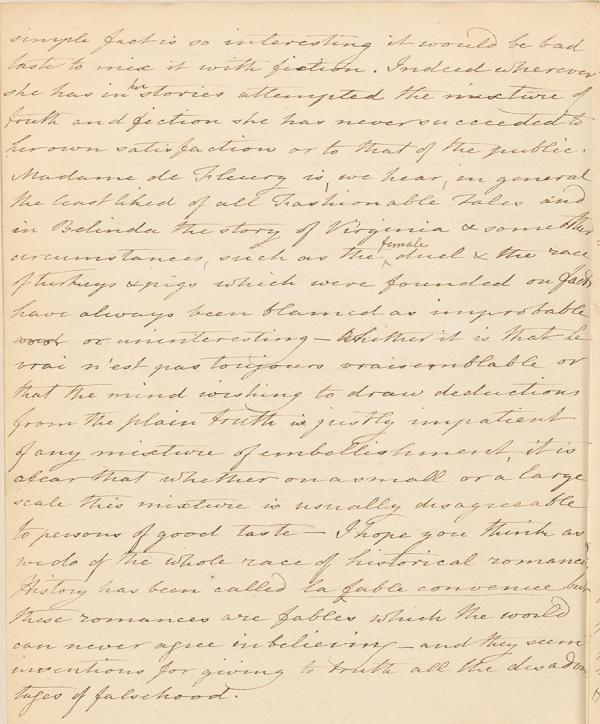 simple fact is so interesting it would be bad
taste to mix it with fiction. Indeed wherever
she has in her stories attempted the mixture of
truth and fiction she has never succeeded to
her own satisfaction or to that of the public.
Madame de Fleury is, we hear, in general
the least liked of all Fashionable Tales and
in Belinda the story of Virginia & some other
circumstances, such as the female duel & the race
of turkeys & pigs which were founded on facts
have always been blamed as improbable
or uninteresting — Whether it is that le
vrai n'est pas toujours vraisemblable or
that the mind wishing to draw deductions
from the plain truth is justly impatient
of any mixture of embellishment, it is
clear that whether on a small or a large
scale this mixture is usually disagreeable
to persons of good taste — I hope you think as
we do of the whole race of historical romances
History has been called la fable convenue but
these romances are fables which the world
can never agree in believing — and they seem
inventions for giving to truth all the disadvan
tages of falsehood.